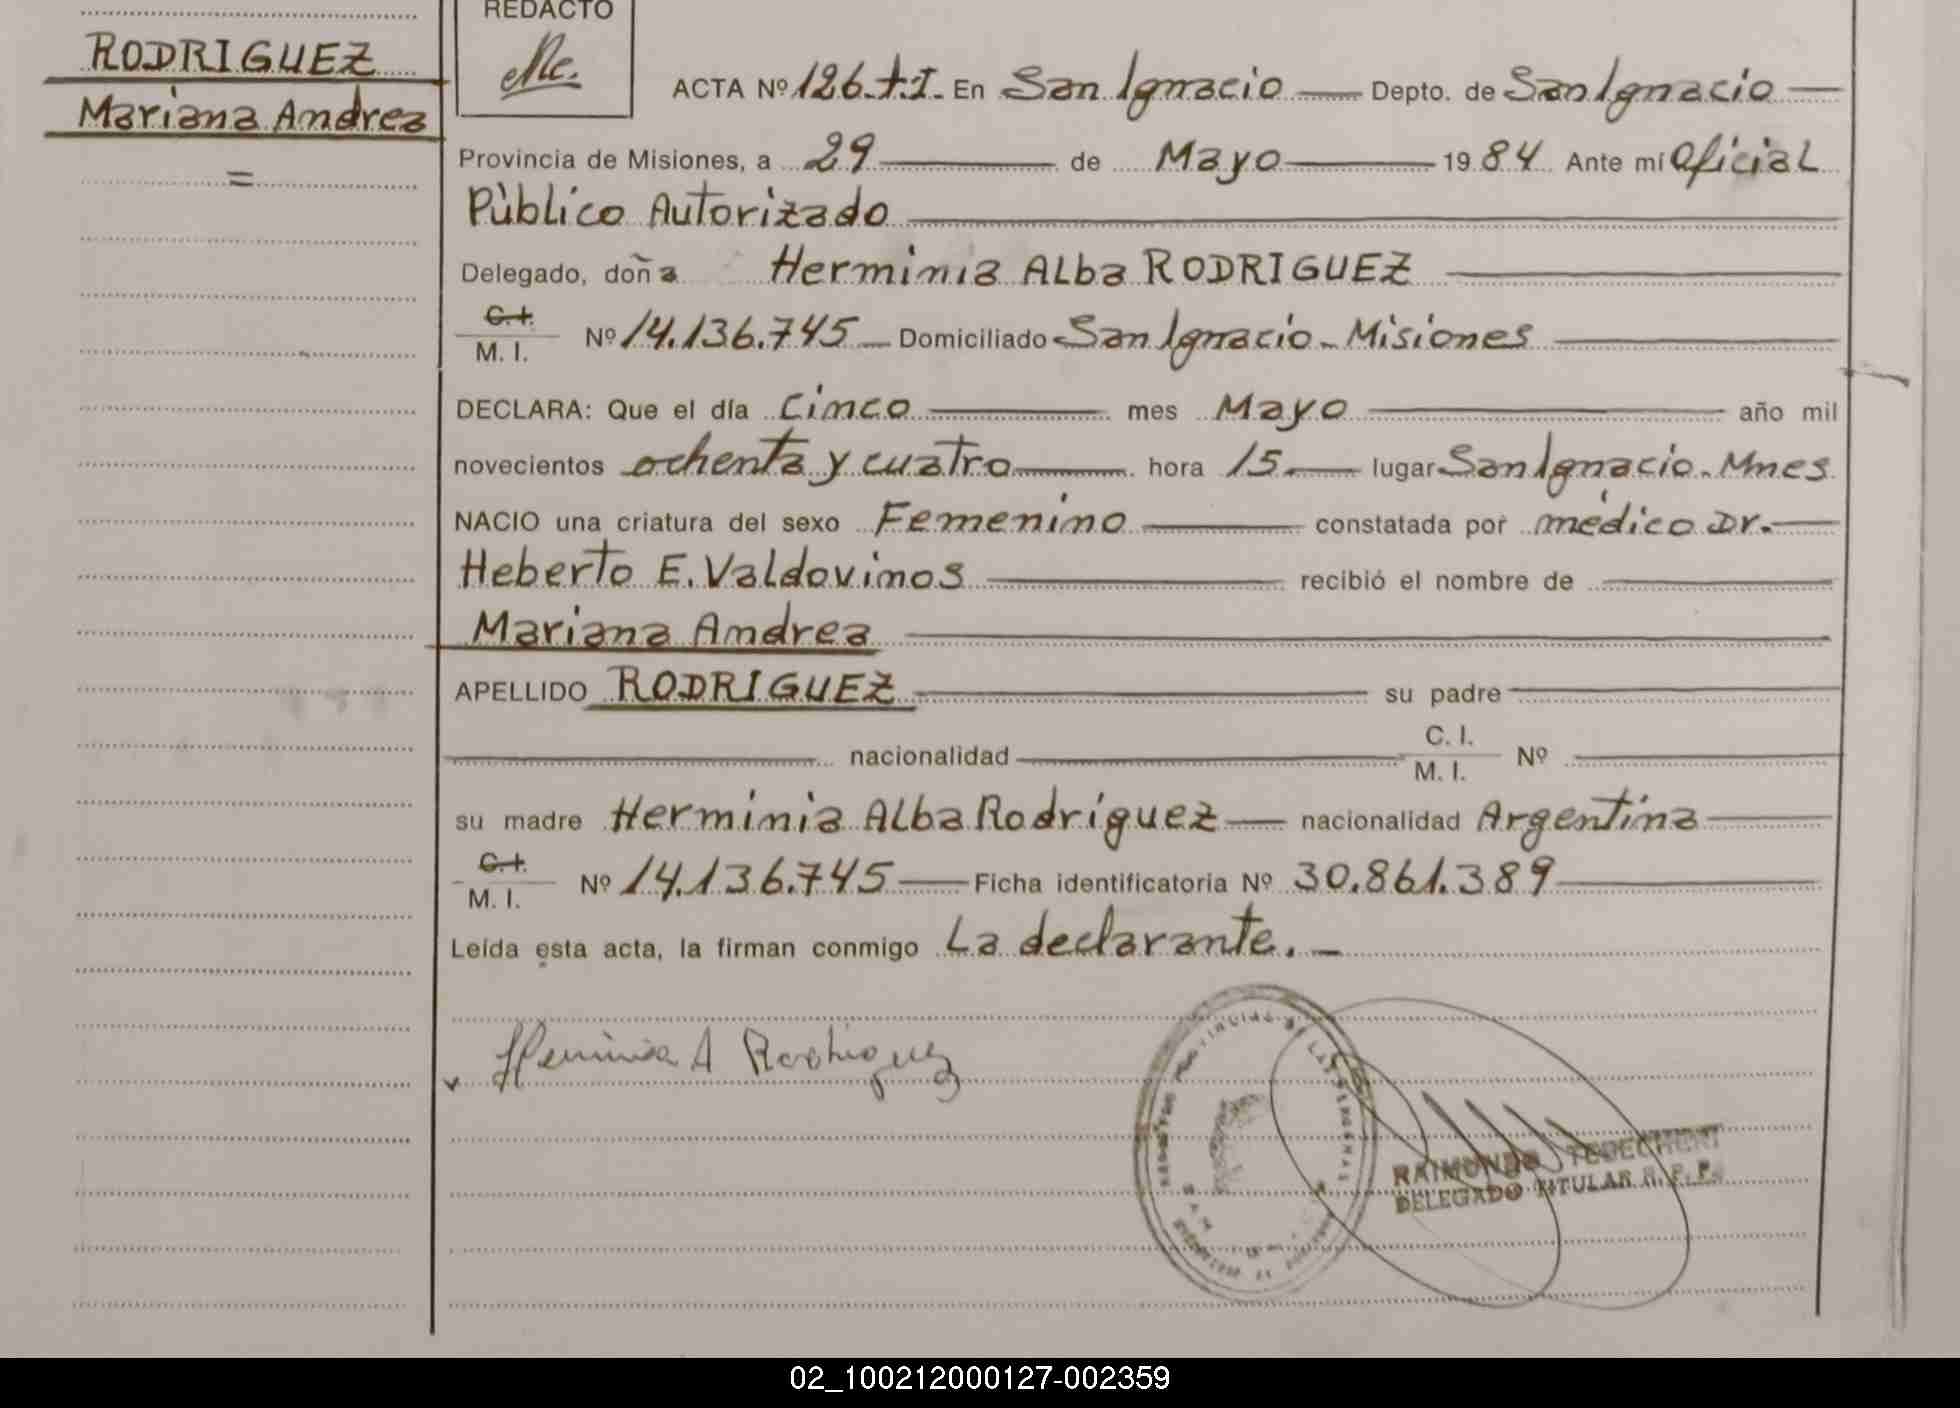 REDACTO
RODRIGUEZ
Mariana Andrea
=
ACTA Nº 126.t.I. En San Ignacio Depto. de San Ignacio
Provincia de Misiones, a 29 de Mayo 1984 Ante mí Oficial
Pùblico Autorizado
Delegado, doña Herminia Alba RODRIGUEZ
C.I.
M. I. Nº 14.136.745 Domiciliado San Ignacio - Misiones
DECLARA: Que el día Cinco mes Mayo año mil
novecientos ochenta y cuatro hora 15 lugar San Ignacio - Mnes
NACIO una criatura del sexo Femenino constatada por médico Dr.
Heberto E. Valdovinos recibió el nombre de
Mariana Andrea
APELLIDO RODRIGUEZ su padre
nacionalidad C. I. M. I. Nº
su madre Herminia Alba Rodríguez nacionalidad Argentina
C.I.
M. I. Nº 14.136.745 Ficha identificatoria Nº 30.861.389
Leída esta acta, la firman conmigo La declarante.
Herminia A Rodriguez
REGISTRO PROVINCIAL DE LAS PERSONAS
RAIMUNDO
DELEGADO TITULAR R. P. P.
02_100212000127-002359